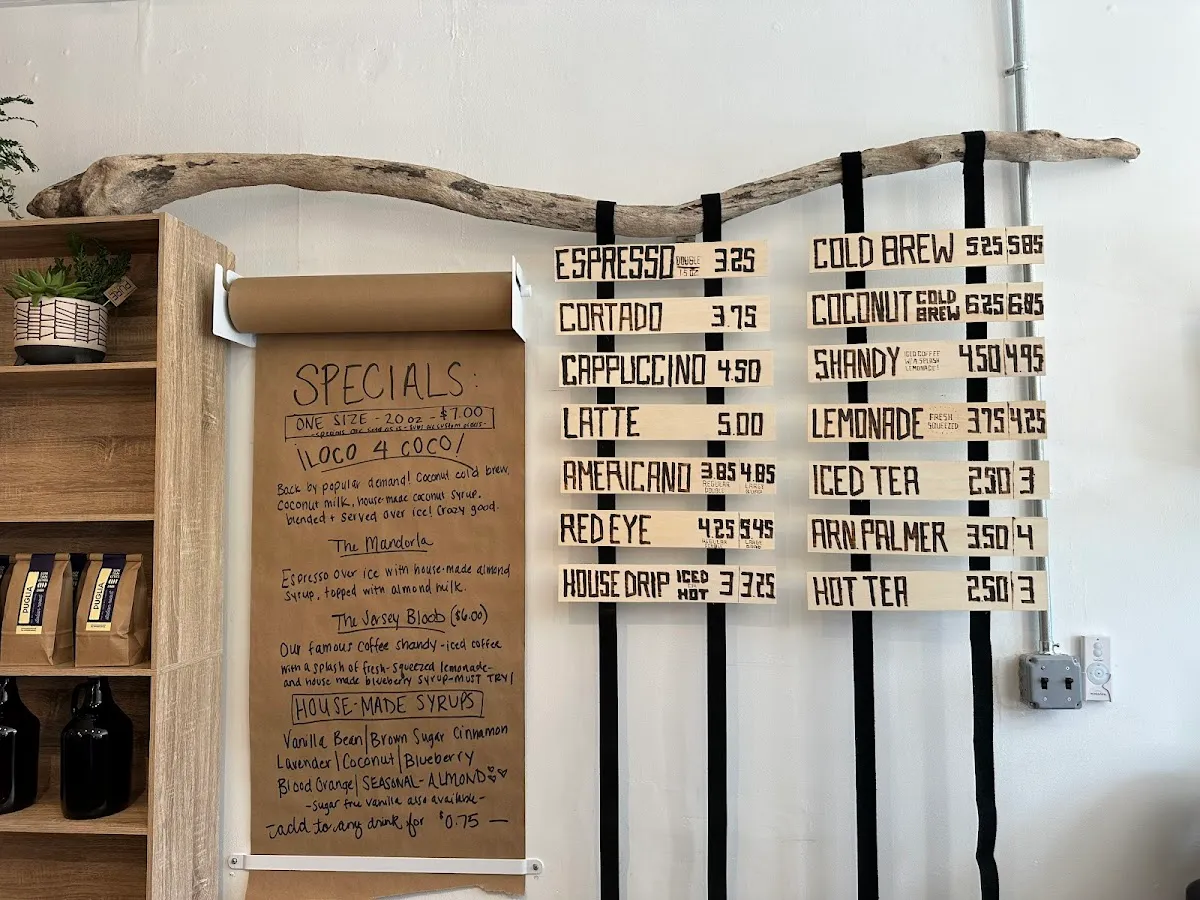 SPECIALS:
ONE SIZE - 20 oz - $7.00
LOCO 4 COCO!
Back by popular demand! Coconut cold brew,
coconut milk, house-made coconut syrup.
blended + served over ice! Crazy good.
The Mandorla
Espresso over ice with house-made almond
syrup, topped with almond milk.
The Jersey Bloob ($6.00)
Our famous coffee shandy-iced coffee
with a splash of fresh-squeezed lemonade-
and house made blueberry syrup-MUST TRY!
HOUSE-MADE SYRUPS
Vanilla Bean | Brown Sugar Cinnamon
Lavender | Coconut | Blueberry
Blood Orange | SEASONAL - ALMOND
-sugar free vanilla also available-
-add to any drink for $0.75 -
ESPRESSO DOUBLE 1.5 OZ 3.25
CORTADO 3.75
CAPPUCCINO 4.50
LATTE 5.00
AMERICANO 3.85 4.85
REGULAR DOUBLE LARGE
RED EYE 4.25 5.45
HOUSE DRIP ICED OR HOT 3 3.25
COLD BREW 5.25 5.85
COCONUT COLD BREW 6.25 6.85
SHANDY ICED COFFEE W/ A SPLASH LEMONADE! 4.50 4.95
LEMONADE FRESH SQUEEZED 3.75 4.25
ICED TEA 2.50 3
ARN PALMER 3.50 4
HOT TEA 2.50 3
PUGLIA
PUGLIA